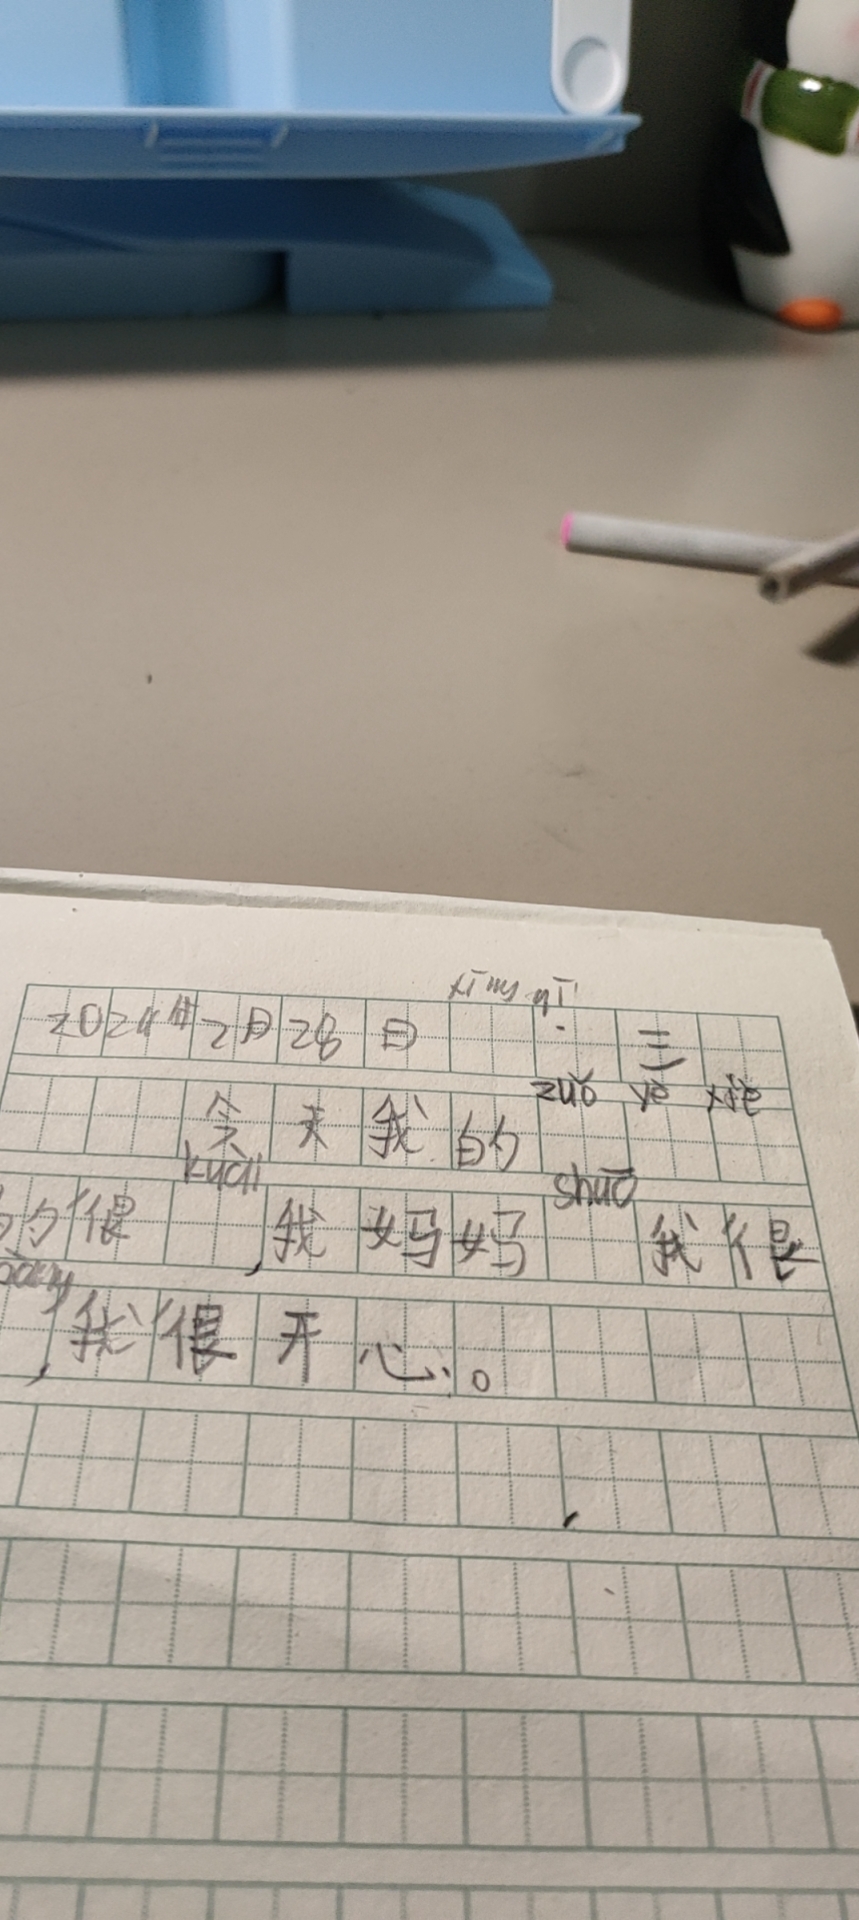 xīng qī
2024年2月28日 三
zuǒ yè xiě
今天我的
kuài shuō
的很 ,我妈妈 我很
,我很开心。